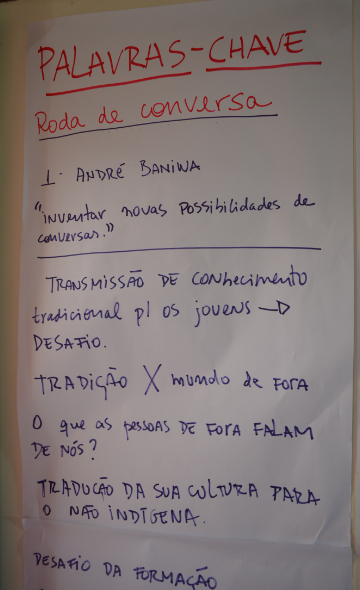 PALAVRAS-CHAVE
Roda de conversa
1. ANDRÉ BANIWA
"inventar novas possibilidades de
conversas."
TRANSMISSÃO DE conhecimento
tradicional p/ os jovens →
DESAFIO.
TRADIÇÃO X mundo de fora
O que as pessoas DE FORA FALAM
DE NÓS?
TRADUÇÃO DA SUA CULTURA PARA
O NÃO INDÍGENA.
DESAFIO DA FORMAÇÃO